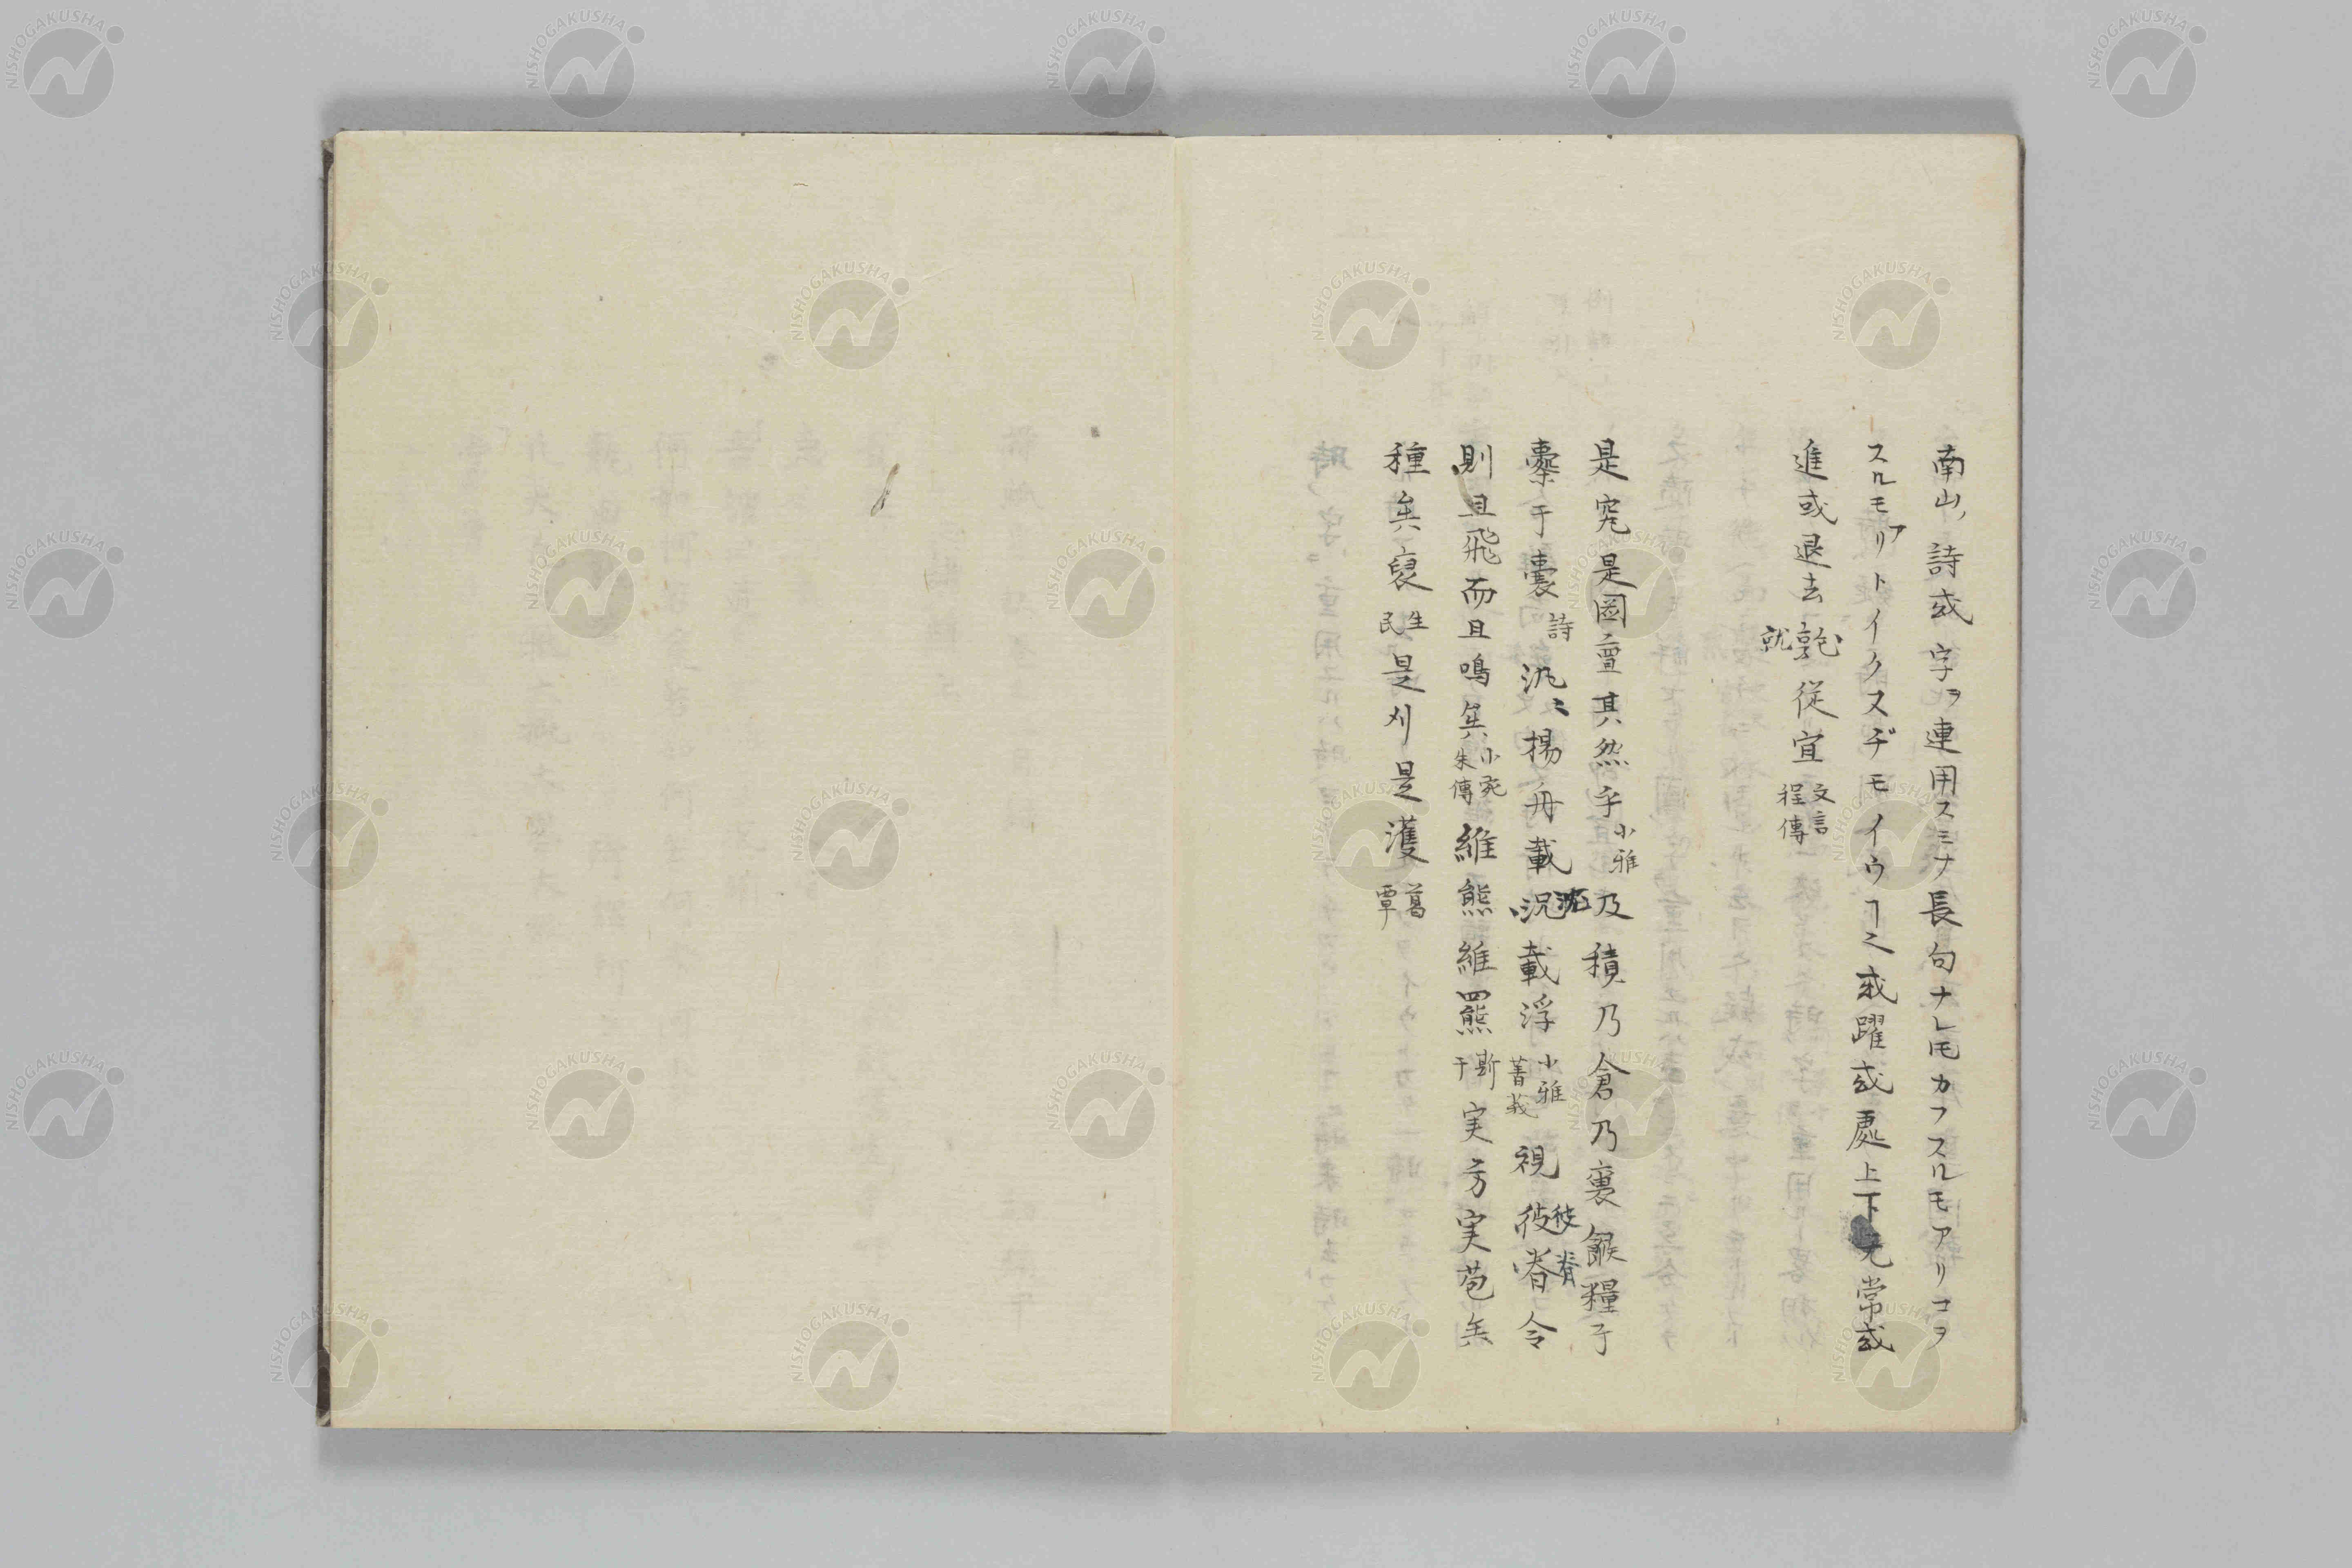 南山ノ詩或ノ字ヲ連用スミナ長句ナレ𪜈カフスルモアリコヲ
スルモアリトイクスヂモイウヿ之或躍或處上下无常或
進或退去就乾従宜文言程傳
是究是圖亶其然乎小雅及積乃倉乃裹餱糧于
橐于囊詩汎〻揚舟載沈載浮小雅菁莪視彼脊令
則且飛而且鳴矣小宛朱傳維熊維羆斯干実方実苞矣
種矣褎生民是刈是濩葛覃
NISHOGAKUSHA